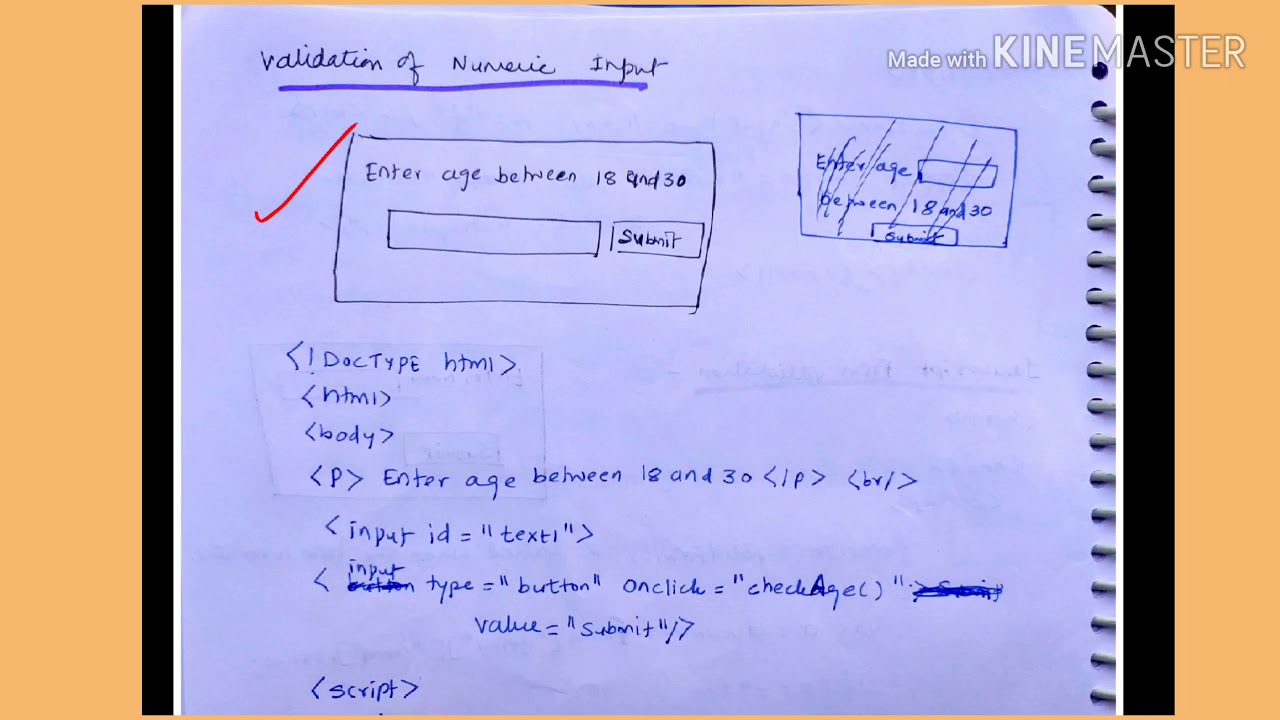 Validation of Numeric Input
Made with KINEMASTER
Enter age between 18 and 30
Submit
Enter age
between 18 and 30
Submit
<!DOCTYPE html>
<html>
<body>
<P> Enter age between 18 and 30 </p> <br/>
<input id = "text1">
< input type = "button" onclick = "checkAge()"
value = "Submit"/>
<script>